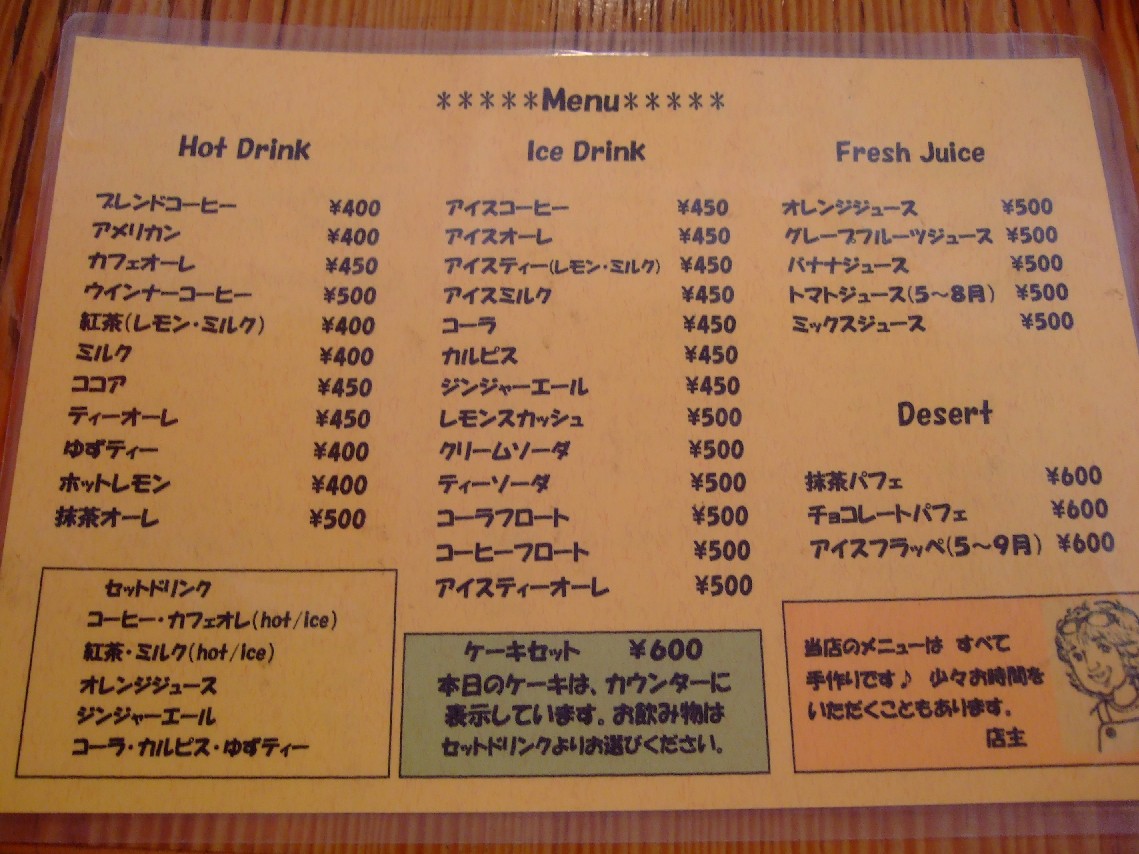 *****Menu*****
Hot Drink
ブレンドコーヒー ¥400
アメリカン ¥400
カフェオーレ ¥450
ウインナーコーヒー ¥500
紅茶(レモン・ミルク) ¥400
ミルク ¥400
ココア ¥450
ティーオーレ ¥450
ゆずティー ¥400
ホットレモン ¥400
抹茶オーレ ¥500
Ice Drink
アイスコーヒー ¥450
アイスオーレ ¥450
アイスティー(レモン・ミルク) ¥450
アイスミルク ¥450
コーラ ¥450
カルピス ¥450
ジンジャーエール ¥450
レモンスカッシュ ¥500
クリームソーダ ¥500
ティーソーダ ¥500
コーラフロート ¥500
コーヒーフロート ¥500
アイスティーオーレ ¥500
Fresh Juice
オレンジジュース ¥500
グレープフルーツジュース ¥500
バナナジュース ¥500
トマトジュース(5～8月) ¥500
ミックスジュース ¥500
Desert
抹茶パフェ ¥600
チョコレートパフェ ¥600
アイスフラッペ(5～9月) ¥600
セットドリンク
コーヒー・カフェオレ(hot/ice)
紅茶・ミルク(hot/ice)
オレンジジュース
ジンジャーエール
コーラ・カルピス・ゆずティー
ケーキセット ¥600
本日のケーキは、カウンターに
表示しています。お飲み物は
セットドリンクよりお選びください。
当店のメニューは すべて
手作りです♪ 少々お時間を
いただくこともあります。
店主